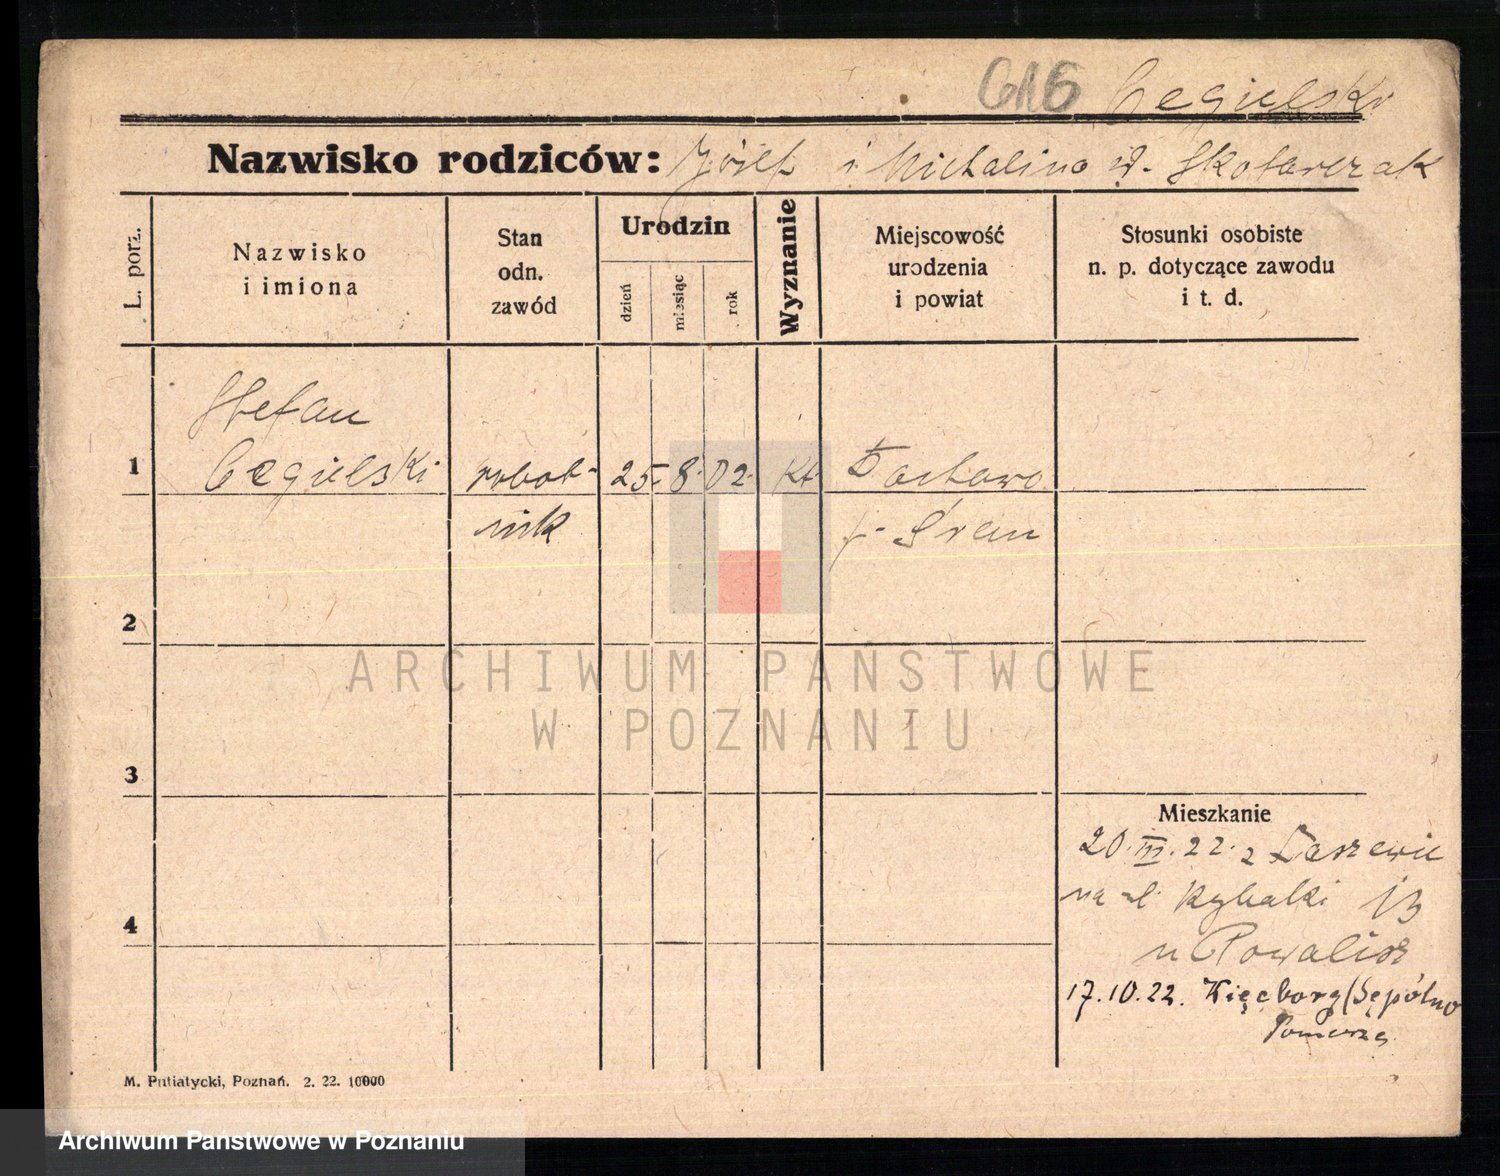 616 Cegielski
Nazwisko rodziców: Józef i Michalina d. Skotarczak
L. porz.
Nazwisko
i imiona
Stan
odn.
zawód
Urodzin
dzień
miesiąc
rok
Wyznanie
Miejscowość
urodzenia
i powiat
Stosunki osobiste
n. p. dotyczące zawodu
i t. d.
Stefan
1 Cegielski robot- 25. 8. 02. kt
nik Śrem
2
3
4
Mieszkanie
20. III. 22. z Łaszewic
na ul. Rybaki 13
u Powalisz
17.10.22. Więcborg (Sępólno
M. Putiatycki, Poznań. 2. 22. 10000
ARCHIWUM PAŃSTWOWE
W POZNANIU
Archiwum Państwowe w Poznaniu